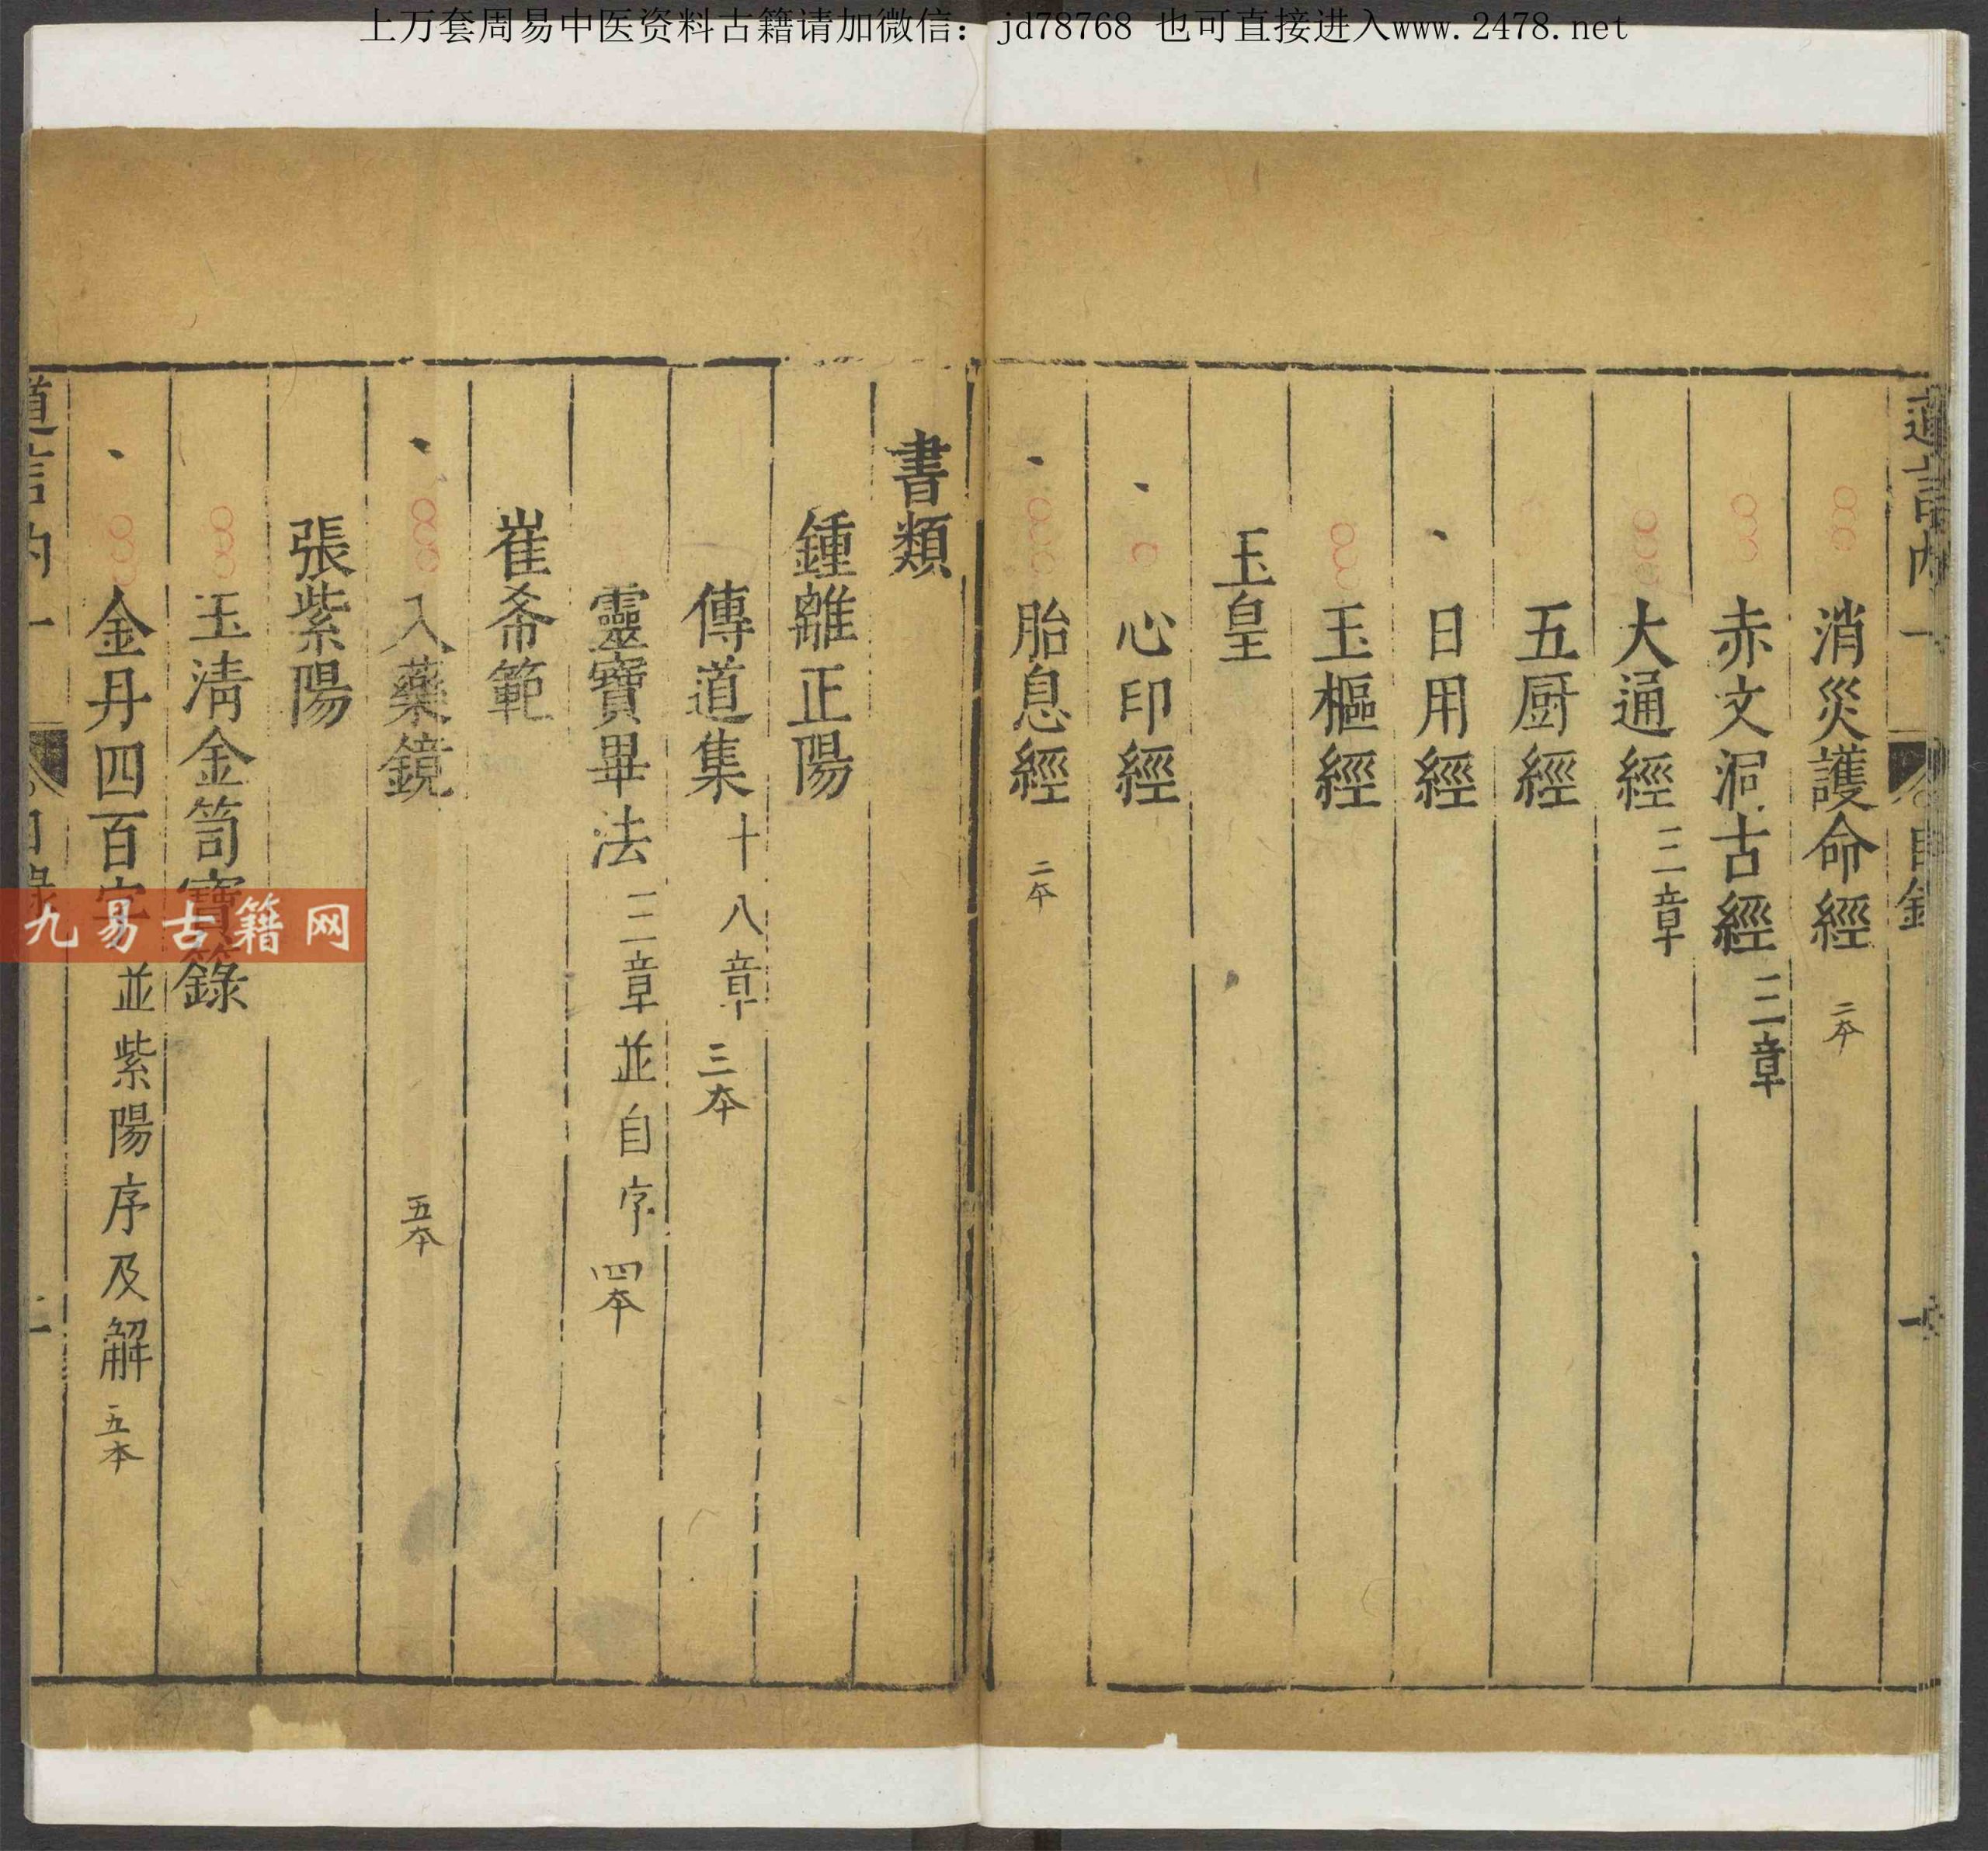 上万套周易中医资料古籍请加微信: jd78768 也可直接进入www.2478.net
道言內 一 目錄 一
消災護命經 二本
赤文洞古經 三章
大通經 三章
五厨經
日用經
玉樞經
玉皇
心印經
胎息經 二本
書類
鍾離正陽
傳道集 十八章 三本
靈寶畢法 三章並自序 四本
崔希範
入藥鏡 五本
張紫陽
玉淸金笥寶籙
金丹四百字 並紫陽序及解 五本
道言內 一 目錄 二
九易古籍网